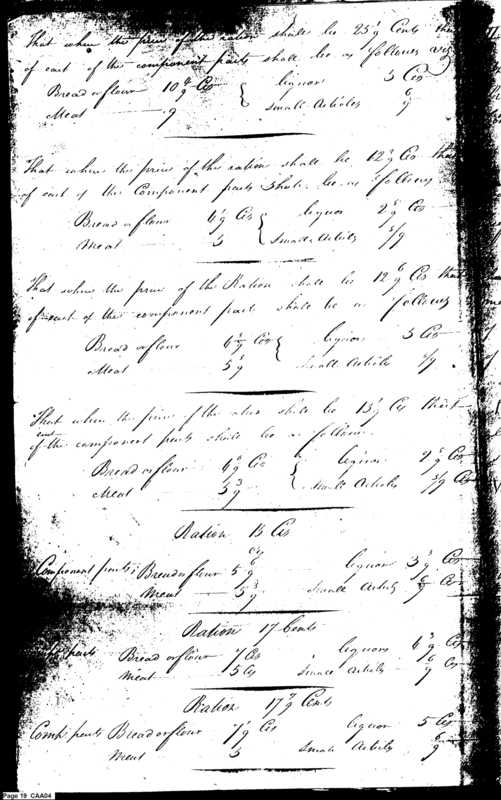 That when the price of the ration shall be 25 1/9 Cents that
of each of the component parts shall be as follows viz
Bread or flour 10 4/9 Cts { liquor 5 Cts
Meat 9 small Articles 6/9
That when the price of the ration shall be 12 Cts that
of each of the Component parts shall be as follows
Bread or flour 4 Cts { liquor 2 Cts
Meat 5 Small Articles 5/9
That when the price of the Ration shall be 12 6/9 Cts that
of each of the component parts shall be as follows
Bread or flour 4 Cts { liquor 3 Cts
Meat 5 Small Articles /9
That when the price of the ration shall be 13 Cts that
of the component parts shall be as follows
Bread or flour 4 Cts { liquor 2 Cts
Meat 5 3/9 Small Articles 5/9 Cts
Ration 15 Cts
Component parts; Bread or flour 5 liquor 3 Cts
Meat 5 3/9 Small Articles Cts
Ration 17 Cents
parts Bread or flour 7 Cts liquors 4 3/9 Cts
Meat 5 Cts Small Articles 6/9 Cts
Ration 17 7/9 Cents
Comp: parts Bread or flour 7 1/9 Cts liquor 5 Cts
Meat 5 Small Articles 6/9
Page 19 CAA04